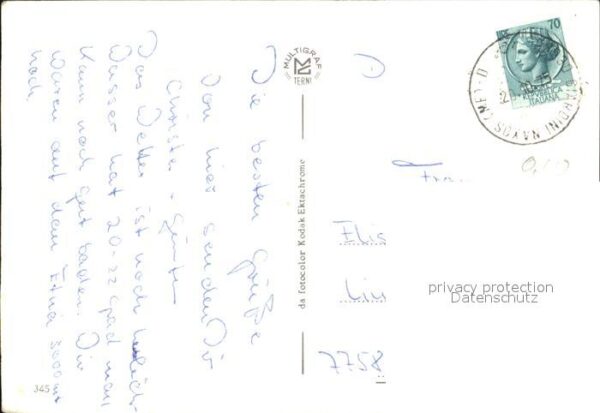 Die besten Grüße
von hier senden Dir
Christa + Günter
Das Wetter ist noch herrlich
Wasser hat 20-22 Grad man
kann noch gut baden. Wir
waren auf dem Etna 3000 mt
hoch
345
MULTIGRAF
TERNI
da fotocolor Kodak Ektachrome
D
70
REPVBBLICA
ITALIANA
GIARDINI NAXOS (ME)
Elis
7758
privacy protection
Datenschutz